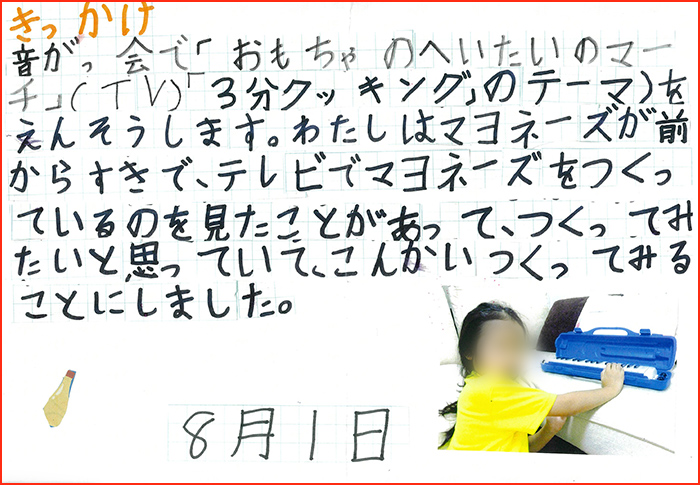 きっかけ
音がっ会で「おもちゃのへいたいのマー
チ」(TV)「3分クッキング」のテーマ)を
えんそうします。わたしはマヨネーズが前
からすきで、テレビでマヨネーズをつくっ
ているのを見たことがあって、つくってみ
たいと思っていて、こんかいつくってみる
ことにしました。
8月1日